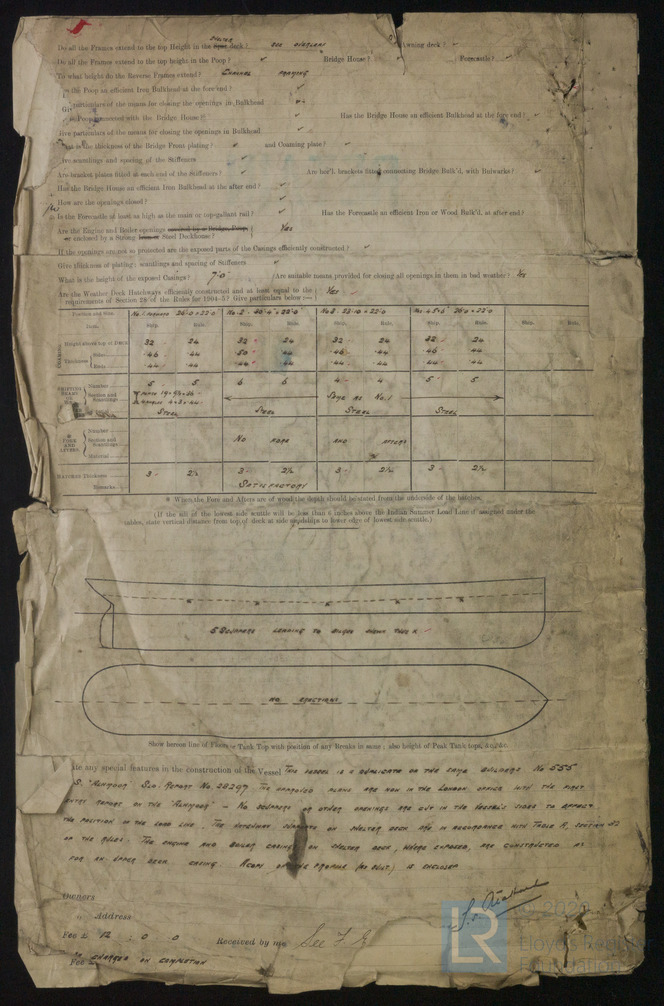 Do all the Frames extend to the top Height in the Spar deck? SHELTER SEE OVERLEAF Awning deck? ✓
Do all the Frames extend to the top height in the Poop? ✓ Bridge House? ✓ Forecastle? ✓
To what height do the Reverse Frames extend? CHANNEL FRAMING
Is the Poop an efficient Iron Bulkhead at the fore end? ✓
particulars of the means for closing the openings in Bulkhead
Poop connected with the Bridge House? ✓ Has the Bridge House an efficient Bulkhead at the fore end? ✓
Give particulars of the means for closing the openings in Bulkhead ✓
What is the thickness of the Bridge Front plating? ✓ and Coaming plate? ✓
Give scantlings and spacing of the Stiffeners ✓
Are bracket plates fitted at each end of the Stiffeners? ✓ Are hor'l. brackets fitted connecting Bridge Bulk'd. with Bulwarks? ✓
Has the Bridge House an efficient Iron Bulkhead at the after end? ✓
How are the openings closed? ✓
Is the Forecastle at least as high as the main or top-gallant rail? ✓ Has the Forecastle an efficient Iron or Wood Bulk'd. at after end?
Are the Engine and Boiler openings covered by a Bridge, Poop,
or enclosed by a Strong Iron or Steel Deckhouse? YES
If the openings are not so protected are the exposed parts of the Casings efficiently constructed? ✓
Give thickness of plating; scantlings and spacing of Stiffeners ✓
What is the height of the exposed Casings? 7'.0" Are suitable means provided for closing all openings in them in bad weather? YES
Are the Weather Deck Hatchways efficiently constructed and at least equal to the
requirements of Section 28 of the Rules for 1904-5? Give particulars below:— YES
Position and Size No. 1 26.0 x 22.0 No. 2 22.0 No. 3 22.0 No. 4 26.0 x 22.0
Item. Ship. Rule. Ship. Rule. Ship. Rule. Ship. Rule. Ship. Rule.
COAMING Height above top of DECK 32 24 32 24 32 24 32 24
Thickness Sides .46 .44 .50 .44 .46 .44 .46 .44
Ends .44 .44 .44 .44 .44 .44 .44 .44
SHIFTING BEAMS Number 5 5 6 6 4 4 5 5
Section and Scantlings SAME AS No. 1
STEEL STEEL STEEL STEEL
FORE AND AFTERS Number
Section and Scantlings NO FORE AND AFTERS
Material
HATCHES Thickness 3 2½ 3 2½ 3 2½ 3 2½
Remarks SATISFACTORY
* When the Fore and Afters are of wood the depth should be stated from the underside of the hatches.
(If the sill of the lowest side scuttle will be less than 6 inches above the Indian Summer Load Line if assigned under the
tables, state vertical distance from top of deck at side amidships to lower edge of lowest side scuttle.)
5 SCUPPERS LEADING TO BILGES
NO ERECTIONS
Show hereon line of Floors or Tank Top with position of any Breaks in same; also height of Peak Tank tops,
Are any special features in the construction of the Vessel THIS VESSEL IS A DUPLICATE OF THE SAME BUILDERS No 555
SLD. REPORT No. 28297 THE APPROVED PLANS ARE NOW IN THE LONDON OFFICE WITH THE FIRST
ENTRY REPORT ON THE — NO SCUPPERS OR OTHER OPENINGS ARE CUT IN THE VESSEL'S SIDES TO AFFECT
THE POSITION OF THE LOAD LINE. THE ON SHELTER DECK ARE IN ACCORDANCE WITH TABLE A, SECTION
OF THE RULES. THE ENGINE AND BOILER CASINGS ON SHELTER DECK, WHERE EXPOSED, ARE CONSTRUCTED AS
FOR AN UPPER DECK CASING. A COPY OF THE PROFILE (AS BUILT) IS ENCLOSED
Owners
Address
Fee £ 12 : 0 . 0 Received by me See F. E
CHARGED ON COMPLETION
LR
© 2020
Lloyd's Register
Foundation